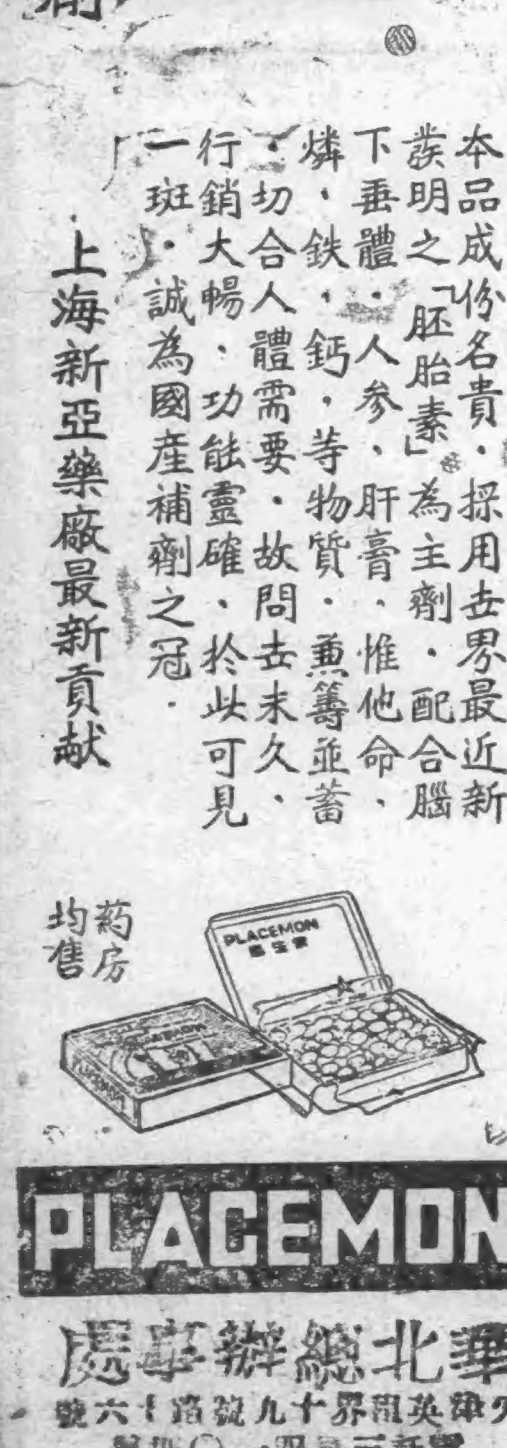 本品成份名貴.採用世界最近新
發明之「胚胎素」為主劑.配合腦
下垂體.人參、肝膏.惟他命、
燐、鉄.鈣.等物質.兼籌並蓄
.切合人體需要.故問世未久、
行銷大暢、功能靈確、於此可見
一斑.誠為國產補劑之冠.
上海新亞藥廠最新貢献
葯房
均售
PLACEMON
PLACEMON
PLACEMON
華北總辦事處
津英租界十九號路十六號